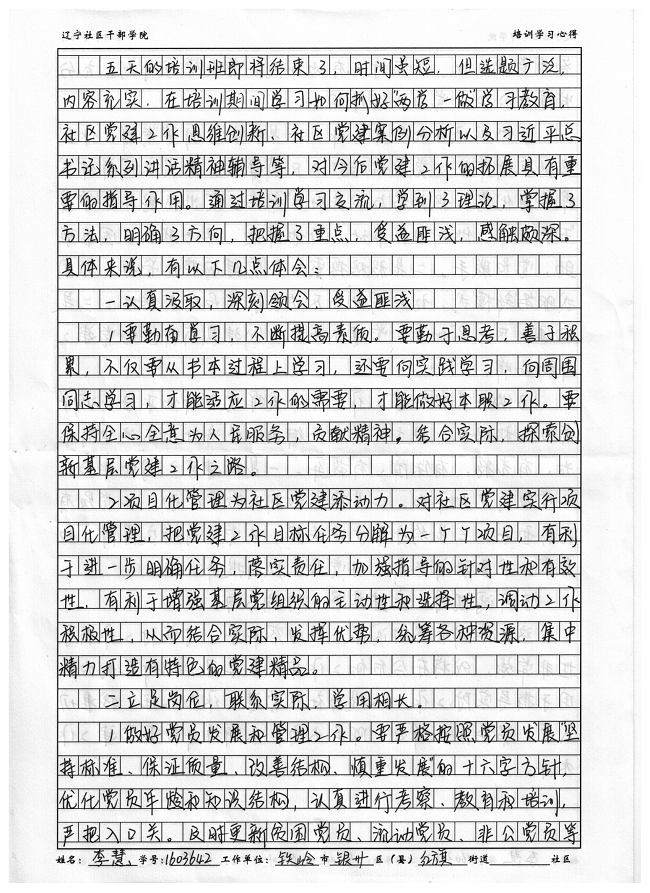 辽宁社区干部学院 培训学习心得
五天的培训班即将结束了，时间虽短，但选题广泛，
内容充实，在培训期间学习如何抓好"两学一做"学习教育，
社区党建工作思维创新、社区党建案例分析以及习近平总
书记系列讲话精神辅导等，对今后党建工作的拓展具有重
要的指导作用。通过培训学习交流，学到了理论，掌握了
方法，明确了方向，把握了重点，受益匪浅，感触颇深。
具体来说，有以下几点体会：
一认真汲取，深刻领会，受益匪浅
1要勤奋学习，不断提高素质。要勤于思考，善于积
累，不仅要从书本过程上学习，还要向实践学习，向周围
同志学习，才能适应工作的需要，才能做好本职工作。要
保持全心全意为人民服务，贡献精神。结合实际，探索创
新基层党建工作之路。
2项目化管理为社区党建添动力。对社区党建实行项
目化管理，把党建工作目标任务分解为一个个项目，有利
于进一步明确任务，落实责任，加强指导的针对性和有效
性，有利于增强基层党组织的主动性和选择性，调动工作
积极性，从而结合实际，发挥优势，统筹各种资源，集中
精力打造有特色的党建精品。
二立足岗位，联系实际，学用相长。
1做好党员发展和管理工作。要严格按照党员发展"坚
持标准、保证质量、改善结构、慎重发展"的十六字方针，
优化党员年龄和知识结构，认真进行考察、教育和培训，
严把入口关。及时更新贫困党员、流动党员、非公党员等
姓名：李慧 学号：1603642 工作单位：铁岭市 银州区（县）红旗 街道 社区